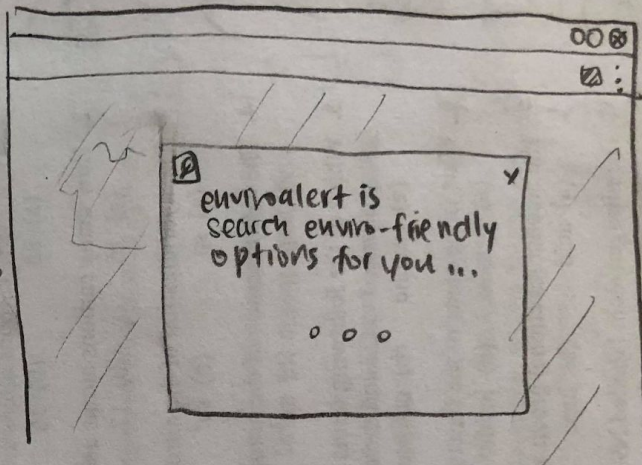 enviroalert is
search enviro-friendly
options for you ...